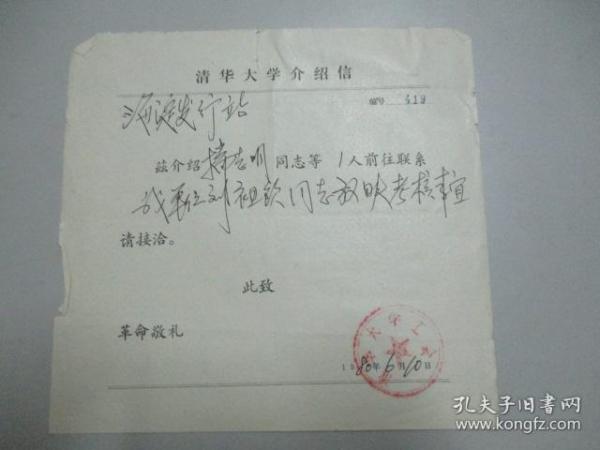 清华大学介绍信
海淀发行站
419
兹介绍 同志等 1人前往联系
我单位刘祖钦同志放映考核事宜
请接洽。
此致
革命敬礼
1980年6月10日
孔夫子旧书网
www.kongfz.com